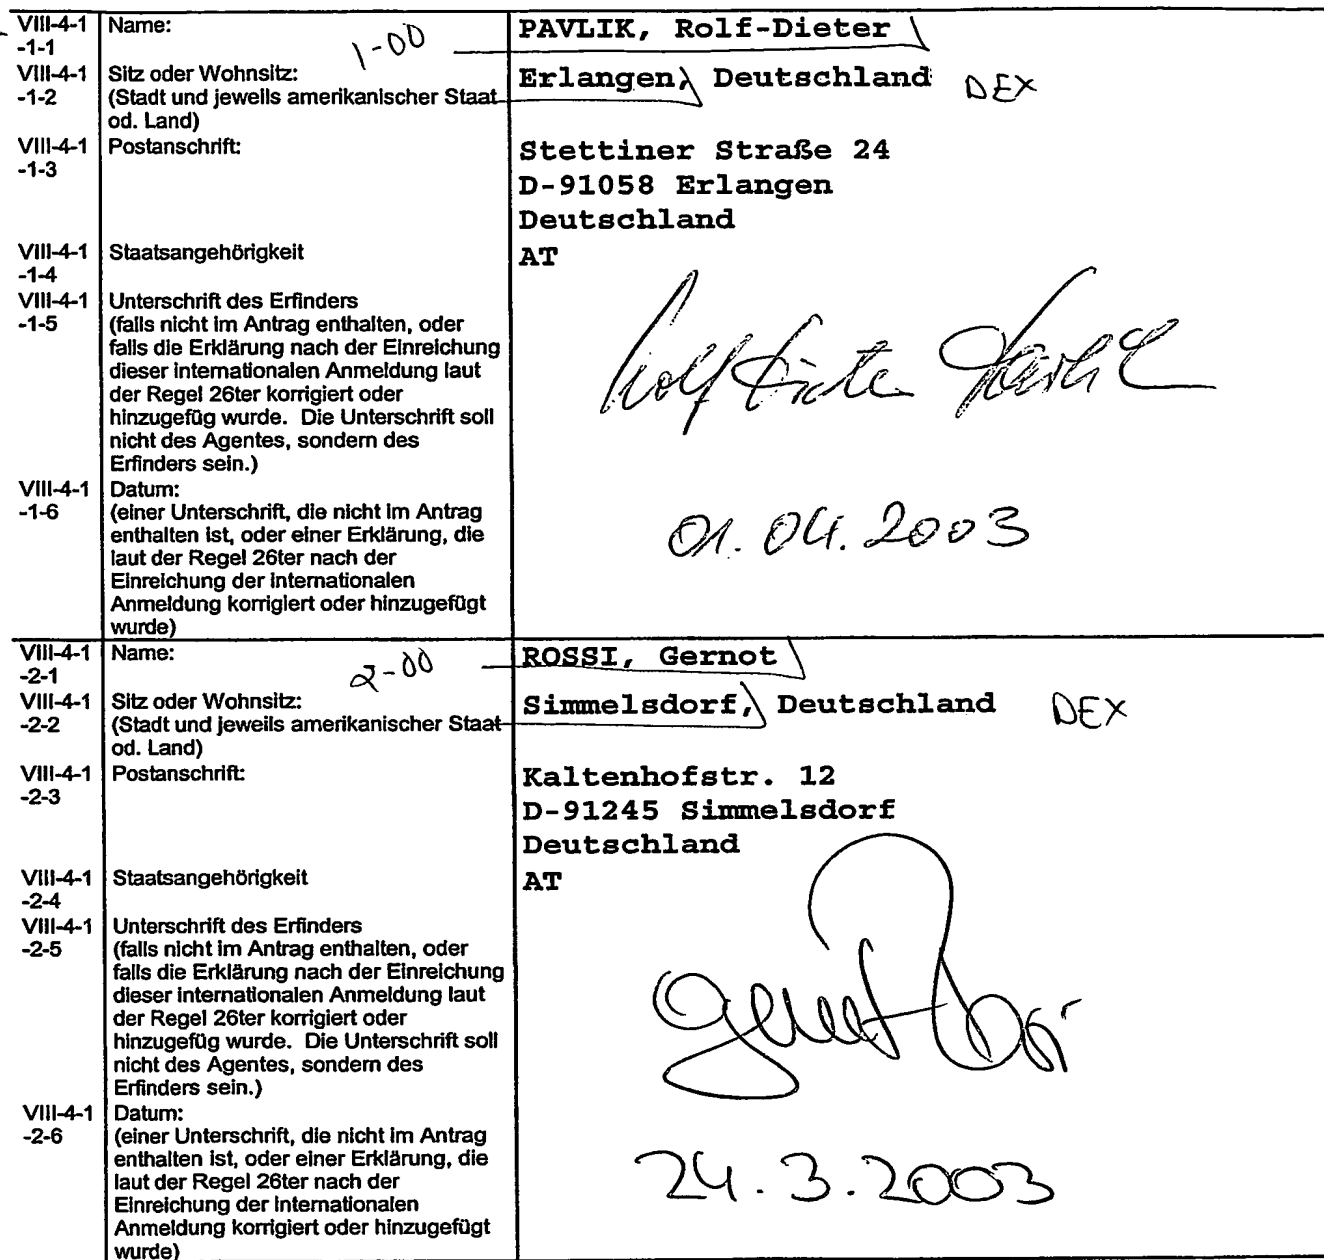 VIII-4-1 Name: 1-00 PAVLIK, Rolf-Dieter
-1-1
VIII-4-1 Sitz oder Wohnsitz: Erlangen, Deutschland DEX
-1-2 (Stadt und jeweils amerikanischer Staat
od. Land)
VIII-4-1 Postanschrift: Stettiner Straße 24
-1-3 D-91058 Erlangen
Deutschland
VIII-4-1 Staatsangehörigkeit AT
-1-4
VIII-4-1 Unterschrift des Erfinders
-1-5 (falls nicht im Antrag enthalten, oder
falls die Erklärung nach der Einreichung
dieser internationalen Anmeldung laut
der Regel 26ter korrigiert oder
hinzugefüg wurde. Die Unterschrift soll
nicht des Agentes, sondern des
Erfinders sein.)
Rolf Dieter Pavlik
VIII-4-1 Datum:
-1-6 (einer Unterschrift, die nicht im Antrag
enthalten ist, oder einer Erklärung, die
laut der Regel 26ter nach der
Einreichung der internationalen
Anmeldung korrigiert oder hinzugefügt
wurde)
01.04.2003
VIII-4-1 Name: 2-00 ROSSI, Gernot
-2-1
VIII-4-1 Sitz oder Wohnsitz: Simmelsdorf, Deutschland DEX
-2-2 (Stadt und jeweils amerikanischer Staat
od. Land)
VIII-4-1 Postanschrift: Kaltenhofstr. 12
-2-3 D-91245 Simmelsdorf
Deutschland
VIII-4-1 Staatsangehörigkeit AT
-2-4
VIII-4-1 Unterschrift des Erfinders
-2-5 (falls nicht im Antrag enthalten, oder
falls die Erklärung nach der Einreichung
dieser internationalen Anmeldung laut
der Regel 26ter korrigiert oder
hinzugefüg wurde. Die Unterschrift soll
nicht des Agentes, sondern des
Erfinders sein.)
Gernot Rossi
VIII-4-1 Datum:
-2-6 (einer Unterschrift, die nicht im Antrag
enthalten ist, oder einer Erklärung, die
laut der Regel 26ter nach der
Einreichung der internationalen
Anmeldung korrigiert oder hinzugefügt
wurde)
24.3.2003